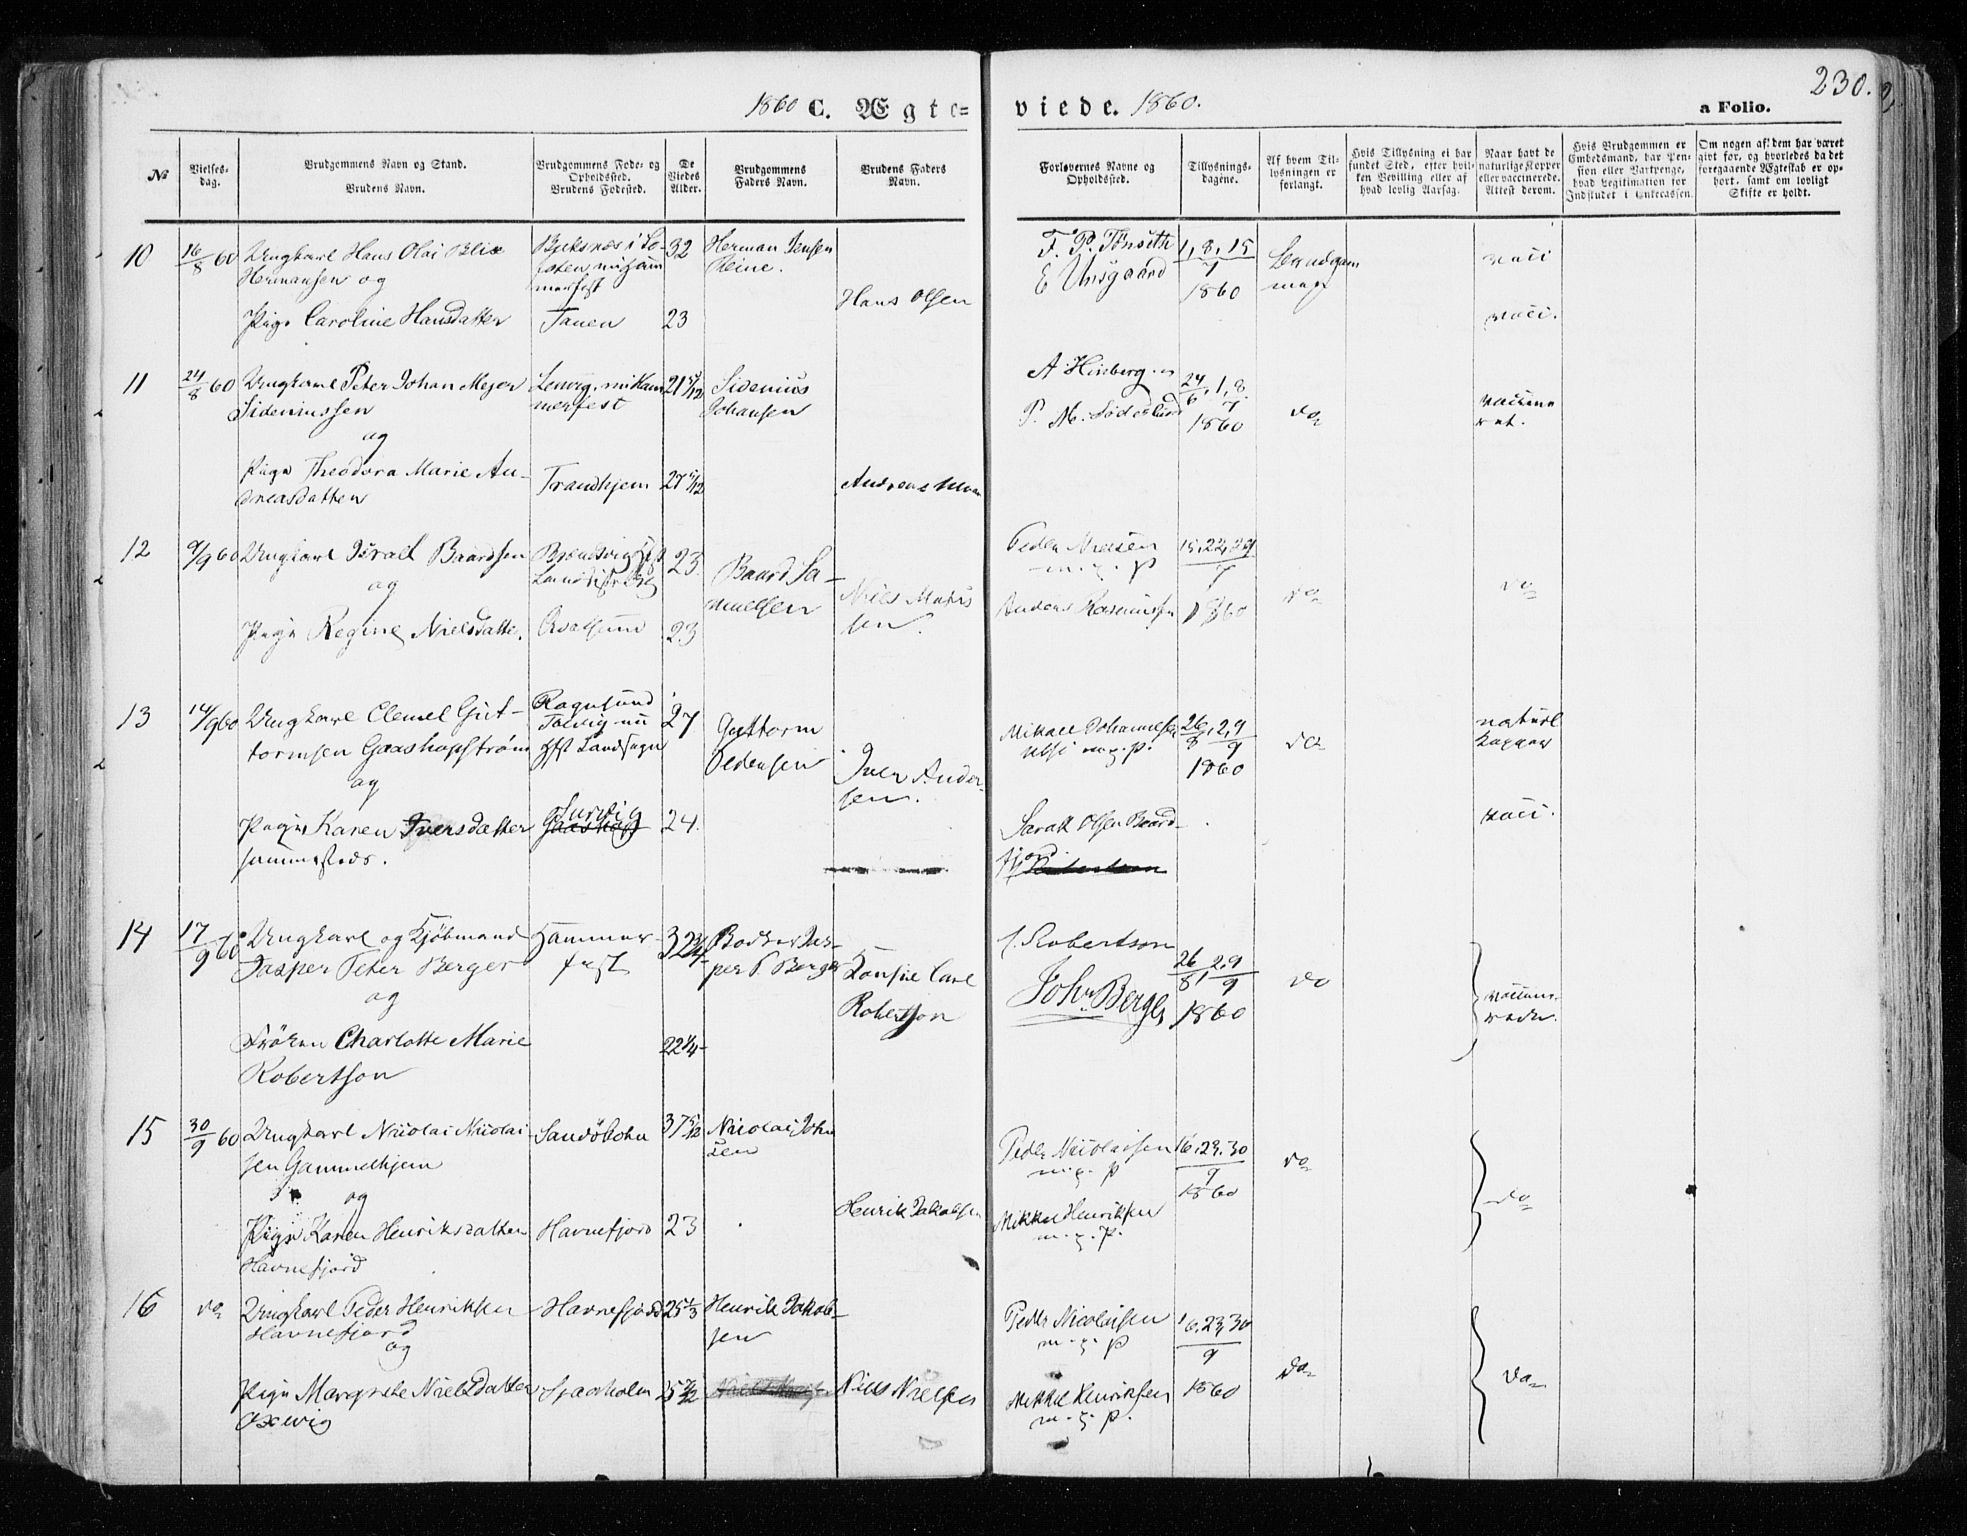 230.
1860 C. Ægte=
viede. 1860.
a Folio.
№
Vielses-
dag.
Brudgommens Navn og Stand.
Brudens Navn.
Brudgommens Føde- og
Opholdssted.
Brudens Fødested.
De
Viedes
Alder.
Brudgommens
Faders Navn.
Brudens Faders
Navn.
Forlovernes Navne og
Opholdssted.
Tillysnings-
dagene.
Af hvem Til-
lysningen er
forlangt.
Hvis Tillysning ei har
fundet Sted, efter hvil-
ken Bevilling eller af
hvad lovlig Aarsag.
Naar havt de
naturlige Kopper
eller vaccinerede.
Attest derom.
Hvis Brudgommen er
Embedsmand, har Pen-
sion eller Vartpenge,
hvad Legitimation for
Indskudet i Enkecassen.
Om nogen af dem har været
gift før, og hvorledes da det
foregaaende Ægteskab er op-
hørt, samt om lovligt
Skifte er holdt.
10
16/8 60
Ungkarl Hans Olai Blix
Hermansen og
Pige Caroline Hansdatter
Tanen
32
23
Herman Jensen
Reine.
Hans Olsen
F. P. Tönseth
E Unsgaard
1, 8, 15
7
1860
vacci
vacci.
11
24/8 60
Ungkarl Peter Johan Mejer
Sideniussen
og
Pige Theodora Marie An-
dreasdatter
Lervig, nu Ham
merfest
Trondhjem
21 5/12
27 5/12
Sidenius
Johansen
Andreas Moe
A Hinberg
P. M.
24/6, 1, 8/7
1860
do
vaccine
ret.
12
9/9 60
Ungkarl Israel Baardsen
og
Pige Regine Nielsdatte.
Qvalsund
23
23
Baard Sa-
muelsen
Niels Mathis
sen.
Peder Nielsen
m. g. p
Anders Rasmussen
15, 22, 29
7
1860
do
do
13
14/9 60
Ungkarl Clemet Gut-
tormsen Gaashopstrøm
og
Pige Karen Iversdatter
sammesteds.
Rognsund
Talvig nu
Hft Landsogn
Survig
Gaashop
27
24.
Guttorm
Pedersen
Iver Ander-
sen.
Mikkel Johannesen
Ulsi m. g. p.
Sarak Olsen Baard-
fjord
26/8, 2, 9/9
1860
do
naturl
Kopper
vacci.
14
17/9 60
Ungkarl og Kjøbmand
Jasper Peter Berger
og
Frøken Charlotte Marie
Robertson
Hammer-
fest
32 3/4
22 1/4
Bødker Jas-
per P. Berger
Konsul Carl
Robertson
Robertson
John Berger
26/8, 2, 9/9
1860
do
vaccine-
rede.
15
30/9 60
Ungkarl Nicolai Nicolai
sen Gammelhjem
og
Pige Karen Henriksdatter
Havnefjord
Sandöbotn
Havnefjord
37 5/12
23
Nicolai John
sen
Henrik Jakobsen
Peder Nicolaisen
m. g. p
Mikkel Henriksen
m. g. p.
16, 23, 30
9
1860
do
do
16
do
Ungkarl Peder Henriksen
Havnefjord
og
Pige Margrete Nielsdatter
Oxevig
Havnefjord
25 1/3
Henrik Jakob-
sen
Niels Nielsen
Peder Nicolaisen
m. g. p
Mikkel Henriksen
m. g. p.
16, 23, 30
9
1860
do
do